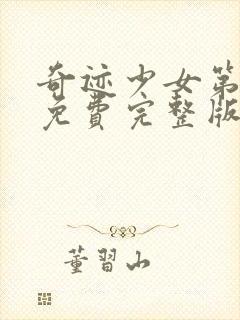 奇迹少女第
免费完整版
董習山